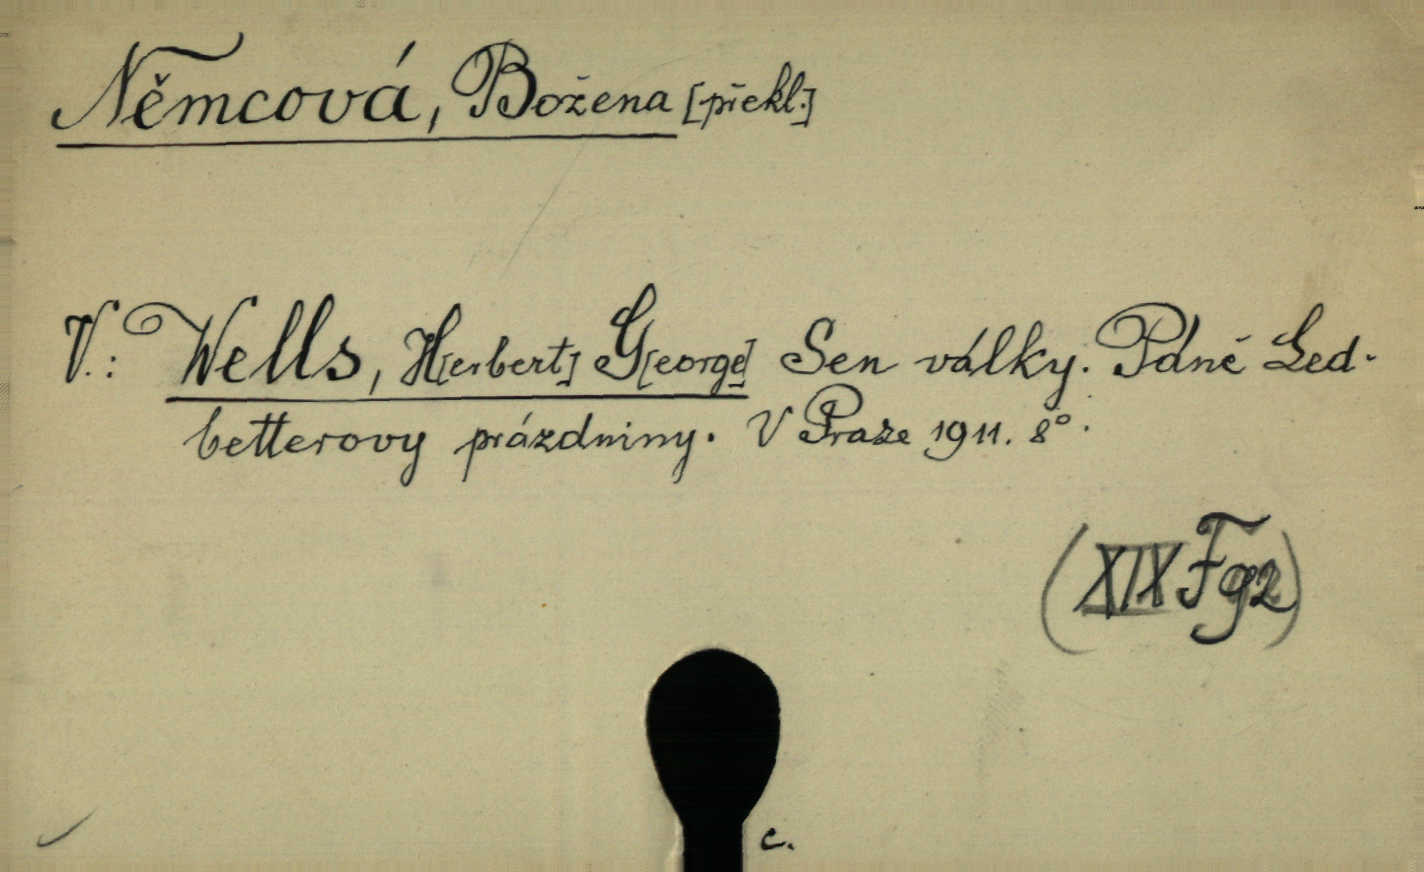 Němcová, Božena [překl.]
V.: Wells, H[erbert] G[eorge] Sen války. Páně Led-
betterovy prázdniny. V Praze 1911. 8°.
(XIX F g 2)
c.